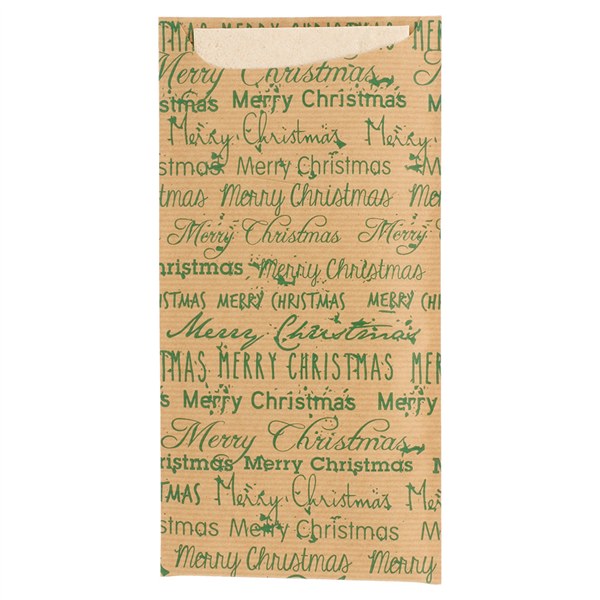 TMAS MERRY CHRISTMAS MER
Merry Christmas
stmas Merry Christmas Me
Merry Christmas Merry
stmas Merry Christmas Me
tmas Merry Christmas Mer
Merry Christmas Merry
hristmas Merry Christmas
ISTMAS MERRY CHRISTMAS MERRY CH
Merry Christmas
TMAS MERRY CHRISTMAS MER
s Merry Christmas Merry
Merry Christmas
ristmas Merry Christmas M
TMAS Merry Christmas Me
stmas Merry Christmas Me
Merry Christmas Mer